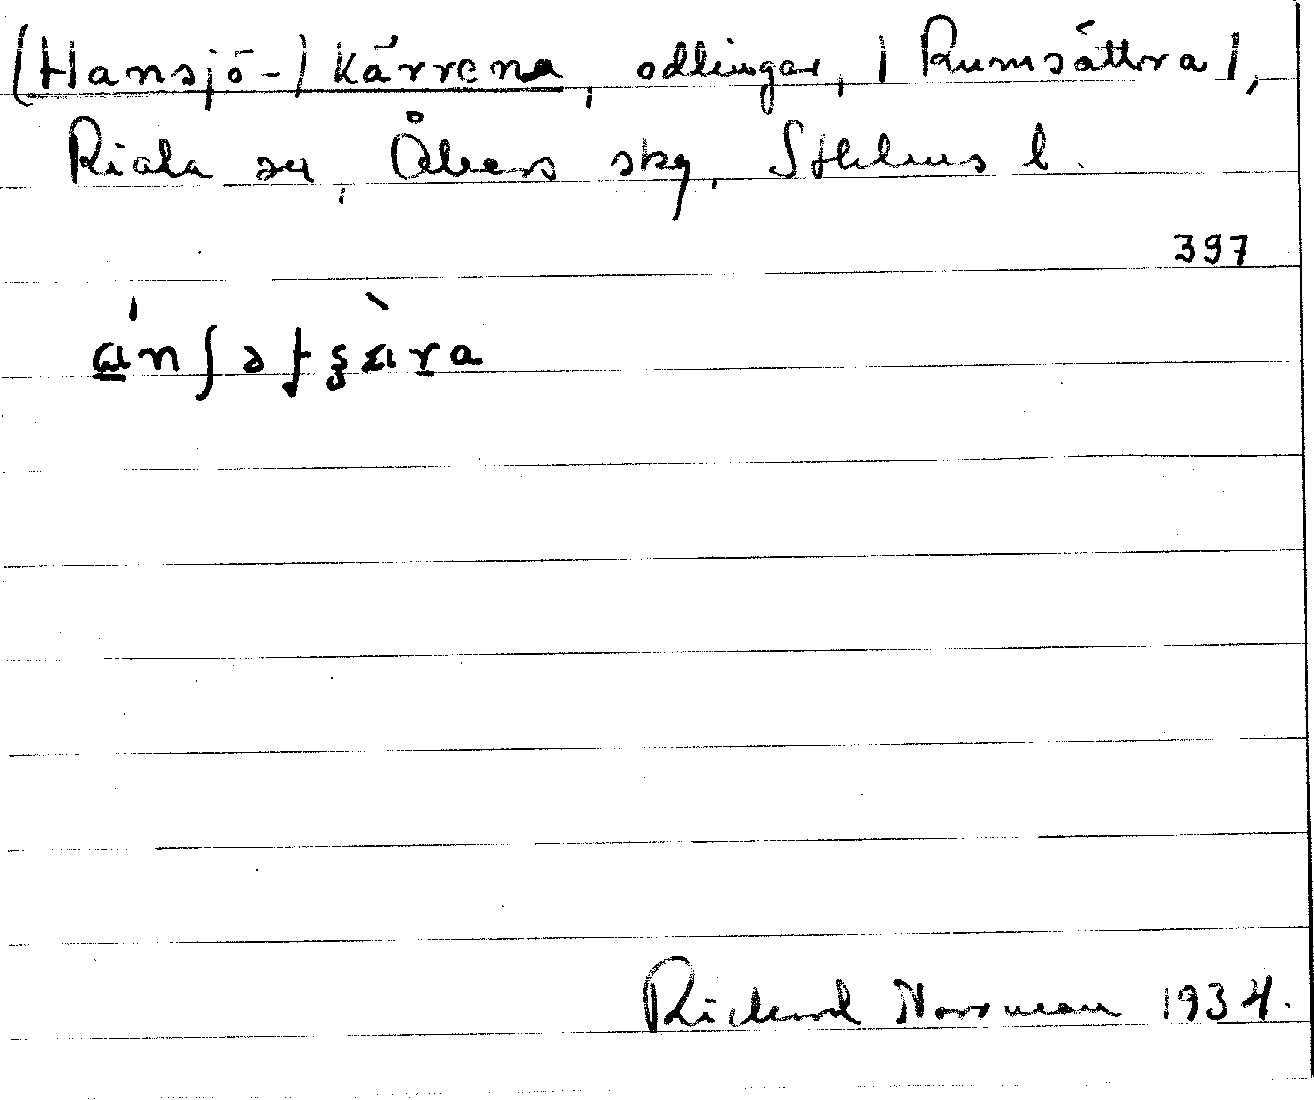 (Hansjö-) kärrena, odlingar, (Rumsättra),
Riala sn, Åkers skg, Sthlms l.
397
Rickard Norrman 1934.